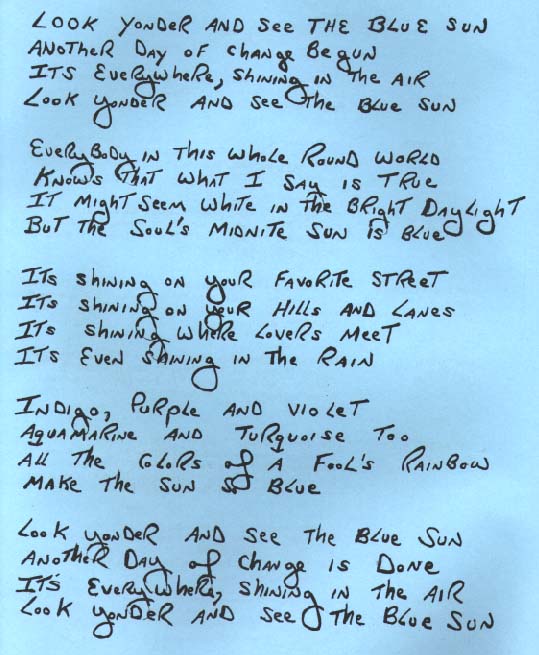 LOOK YONDER AND SEE THE BLUE SUN
ANOTHER DAY OF CHANGE BEGUN
ITS EVERYWHERE, SHINING IN THE AIR
LOOK YONDER AND SEE THE BLUE SUN

EVERYBODY IN THIS WHOLE ROUND WORLD
KNOWS THAT WHAT I SAY IS TRUE
IT MIGHT SEEM WHITE IN THE BRIGHT DAYLIGHT
BUT THE SOUL'S MIDNITE SUN IS BLUE

ITS SHINING ON YOUR FAVORITE STREET
ITS SHINING ON YOUR HILLS AND LANES
ITS SHINING WHERE LOVERS MEET
ITS EVEN SHINING IN THE RAIN

INDIGO, PURPLE AND VIOLET
AQUAMARINE AND TURQUOISE TOO
ALL THE COLORS OF A FOOL'S RAINBOW
MAKE THE SUN SO BLUE

LOOK YONDER AND SEE THE BLUE SUN
ANOTHER DAY OF CHANGE IS DONE
IT'S EVERYWHERE, SHINING IN THE AIR
LOOK YONDER AND SEE THE BLUE SUN